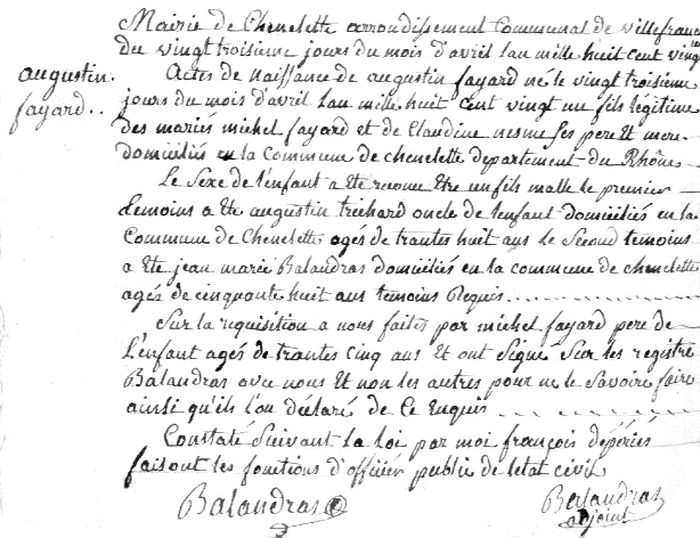 Mairie de Chenelette arrondissement Communal de villefran
du vingt troisieme jours du mois d'avril lan mille huit cent ving
augustin fayard..
Actes de naissance de augustin fayard né le vingt troisieme
jours du mois d'avril lan mille huit Cent vingt un fils legitime
des mariés michel fayard et de Claudine nesme ses pere Et mere
domiciliés en la Commune de chenelette departement du Rhône
Le Sexe de l'enfant a Eté reconu Etre un fils malle le premier
temoins a Eté augustin trichard oncle de l'enfant domiciliés en la
Commune de Chenelette agés de trantes huit ans Le Second temoins
a Eté jean marie Balandras domiciliés en la commune de chenelette
agés de cinquante huit ans temoins Requis
Sur la requisition a nous faites par michel fayard pere de
L'enfant agés de trantes Cinq ans Et ont Signé Sur les registre
Balandras avec nous Et non les autres pour ne le Savoire faire
ainsi qu'ils l'on déclaré de Ce Enquis
Constaté Suivant La Loi par moi françois
faisant les fonctions d'officier public de letat civil
Balandras
Balandras
adjoint